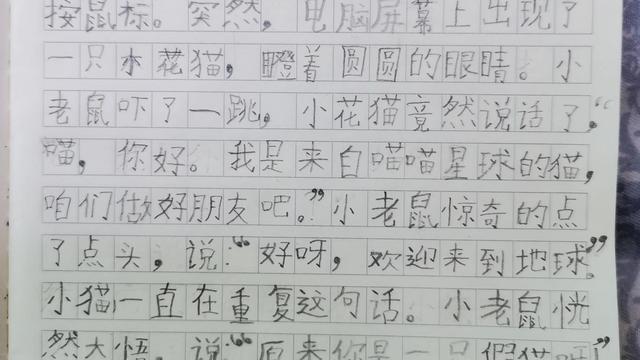 按鼠标。突然，电脑屏幕上出现了
一只小花猫，瞪着圆圆的眼睛。小
老鼠吓了一跳，小花猫竟然说话了，“
喵，你好。我是来自喵喵星球的猫，
咱们做好朋友吧。”小老鼠惊奇的点
了点头，说：“好呀，欢迎来到地球。”
小猫一直在重复这句话。小老鼠恍
然大悟。说“原来你是一只假猫呀